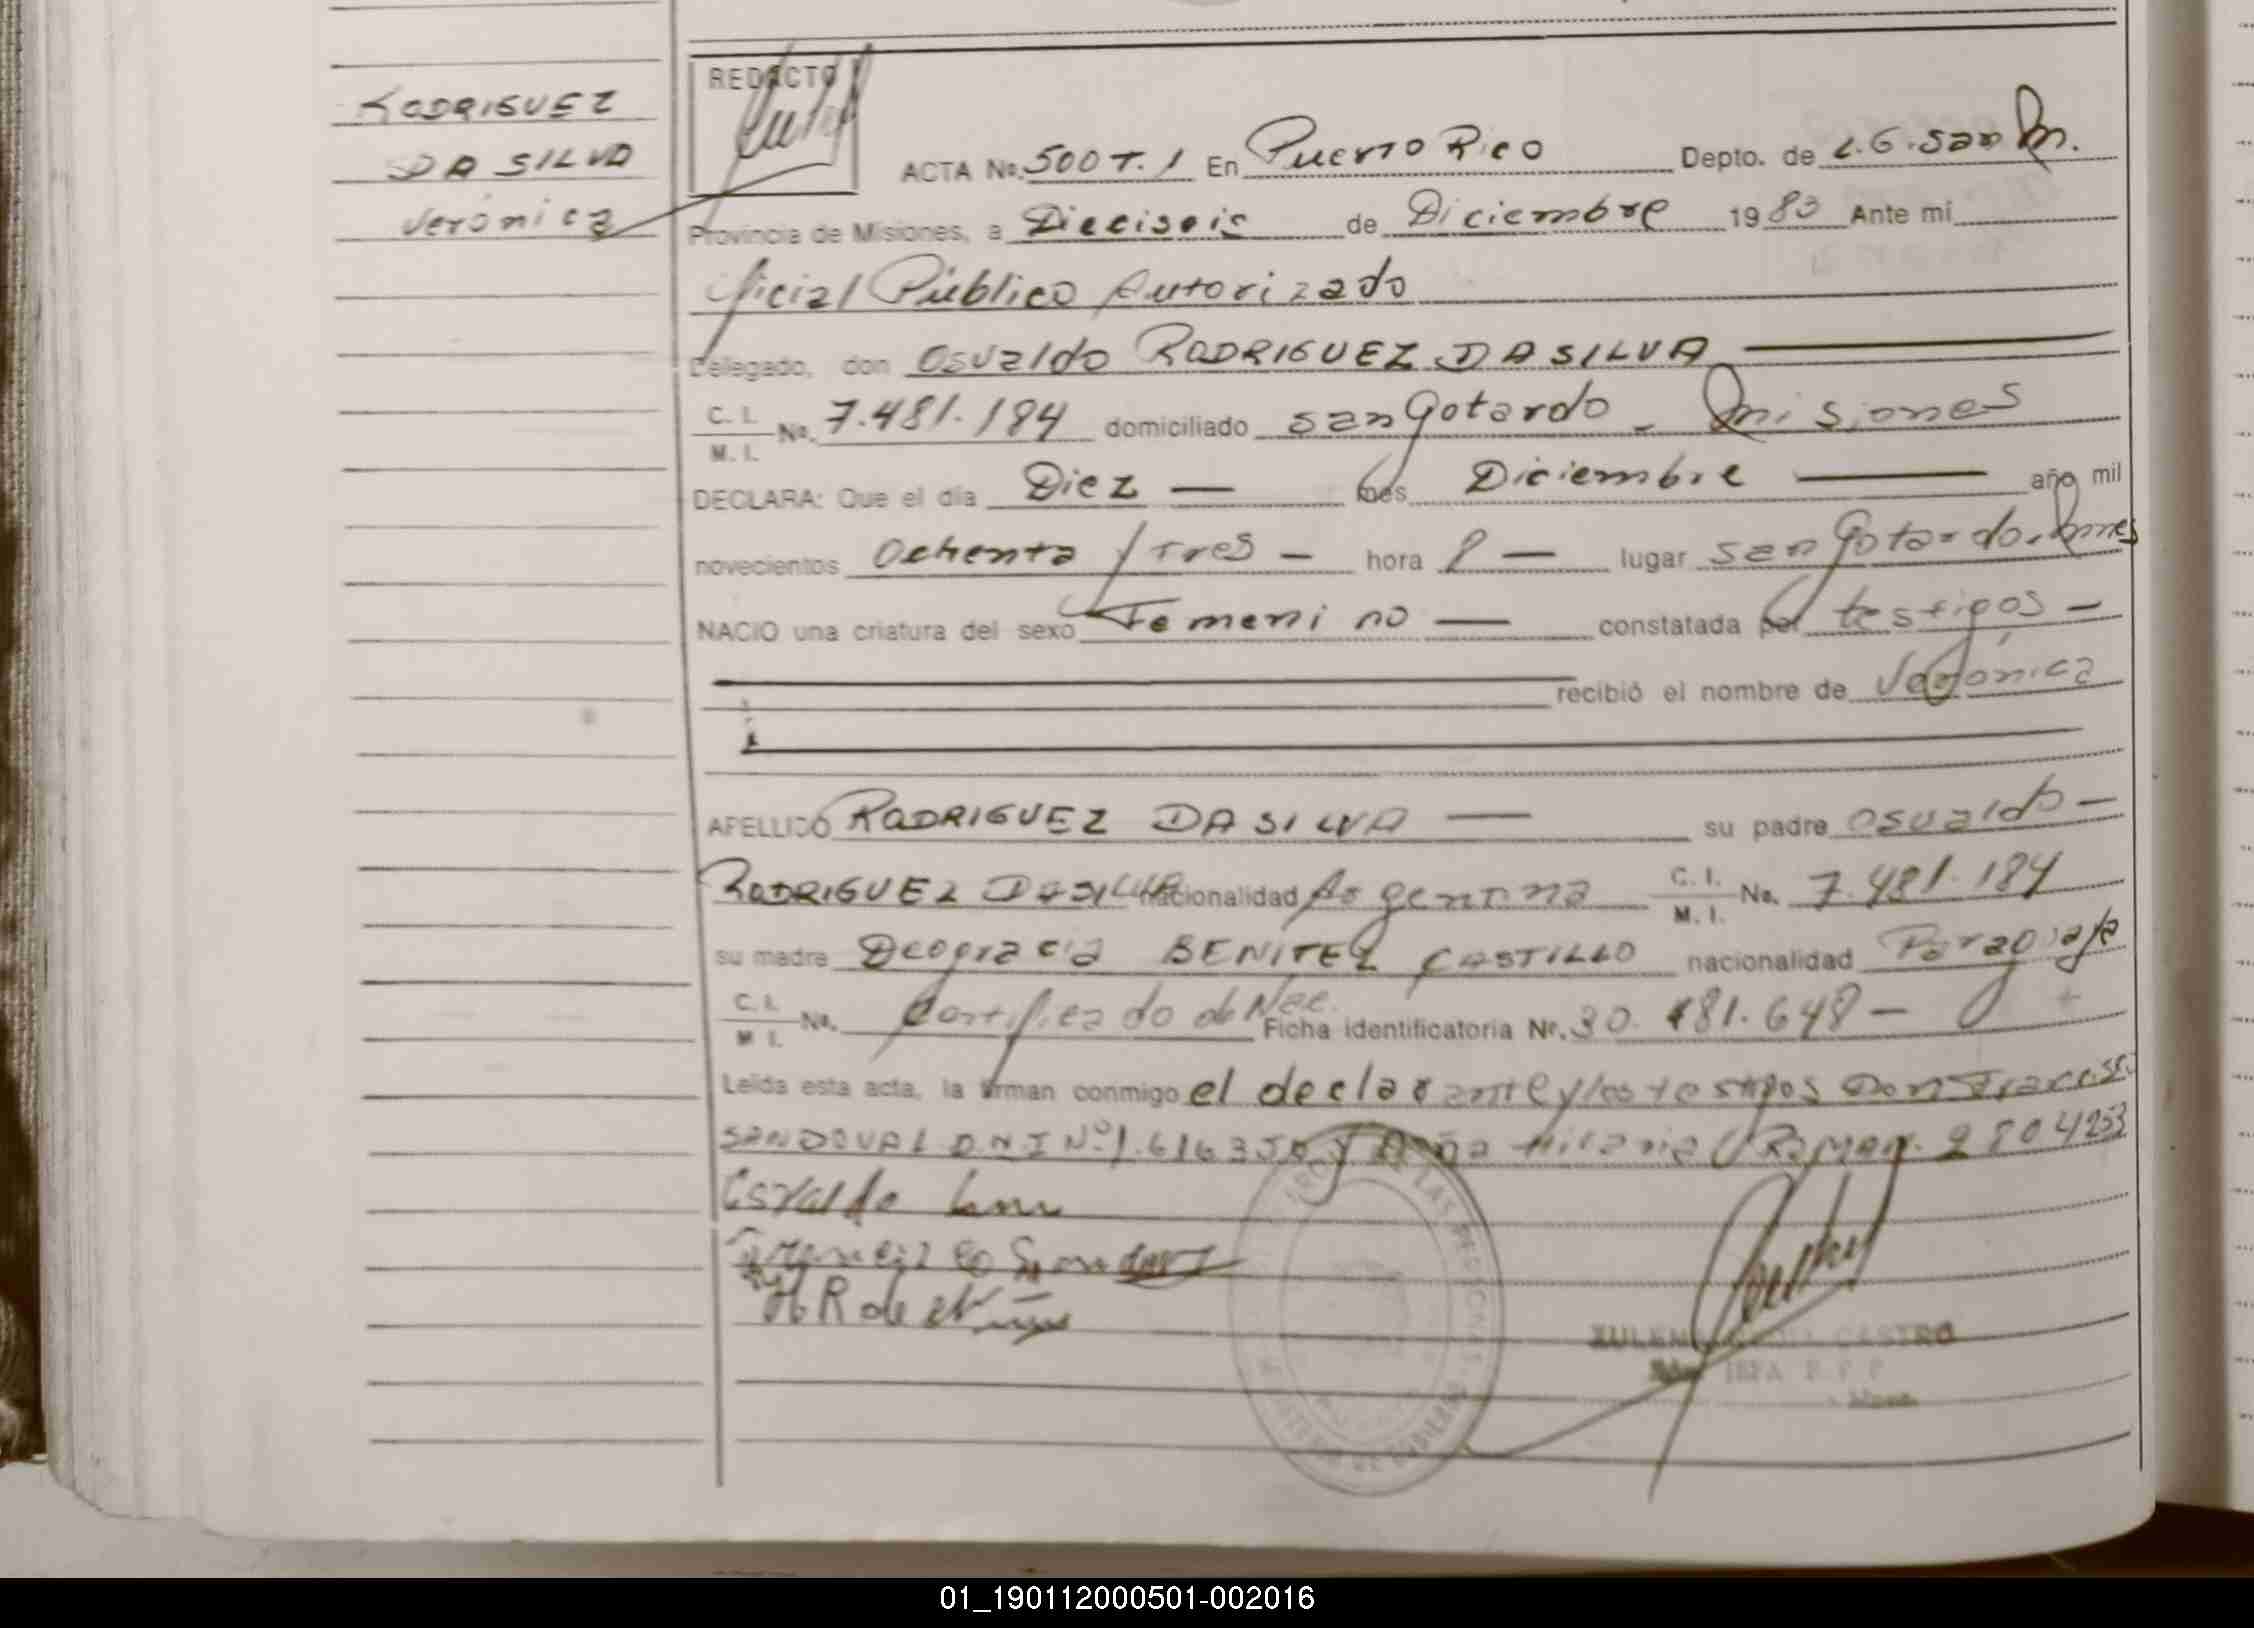 RODRIGUEZ
DA SILVA
Verónica
REDACTO
ACTA No. 500 T. 1 En Puerto Rico Depto. de L.G. San M.
Provincia de Misiones, a Dieciseis de Diciembre 1983 Ante mí
Oficial Público Autorizado
Delegado, don Osvaldo RODRIGUEZ DA SILVA
C. I.
M. I. No. 7.481.184 domiciliado San Gotardo - Misiones
DECLARA: Que el día Diez — mes Diciembre — año mil
novecientos Ochenta y Tres — hora 8 — lugar San Gotardo, Mnes
NACIO una criatura del sexo Femenino — constatada por testigos —
recibió el nombre de Verónica
APELLIDO RODRIGUEZ DA SILVA — su padre Osvaldo —
RODRIGUEZ DA SILVA nacionalidad Argentina C. I. M. I. No. 7.481.184
su madre Deogracia BENITEZ CASTILLO nacionalidad Paraguaya
C. I.
M. I. No. Certificado de Nac. Ficha identificatoria Nº. 30.481.648 —
Leída esta acta, la firman conmigo el declarante y los testigos Don
SANDOVAL D.N.I Nº 1.616350 y Doña Hilaria Roman. 2804253
Osvaldo
H R de
CASTRO
01_190112000501-002016